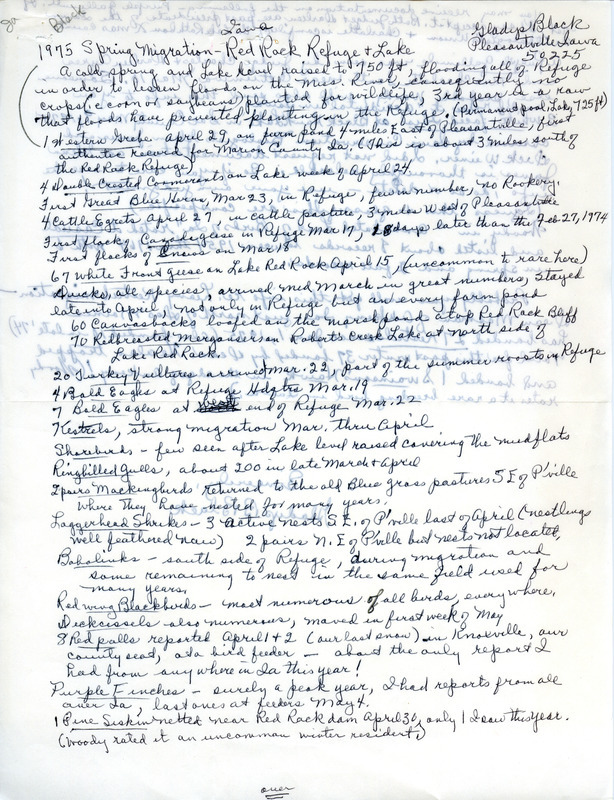 Black
Iowa
Gladys Black
Pleasantville, Iowa
50225
1975 Spring Migration - Red Rock Refuge & Lake
A cold spring and Lake level raised to 750 ft, flooding all of Refuge
in order to lessen floods on the Miss. River, consequently no
crops (i.e. corn or soybeans) planted for wildlife, 3rd year in a row
that floods have prevented planting in the Refuge. (Permanent pool, Lake, 725 ft)
1 Western Grebe April 29, on farm pond 4 miles East of Pleasantville, first
authentic record for Marion County Ia. (This is about 3 miles south of
the Red Rock Refuge)
4 Double Crested Cormorants on Lake week of April 24
First Great Blue Heron, Mar 23, in Refuge, few in number, no Rookery.
4 Cattle Egrets April 27, in cattle pasture, 3 miles West of Pleasantville
First flock of Canada geese in Refuge Mar 17, 18 days later than the Feb 27, 1974
First flocks of Snows on Mar 18
67 White Front geese on Lake Red Rock April 15, (uncommon to rare here)
Ducks, all species, arrived mid March in great numbers, stayed
late into April, not only in Refuge but on every farm pond
60 Canvasbacks loafed on the marsh pond atop Red Rock Bluff
70 Redbreasted Mergansers on Roberts Creek Lake at north side of
Lake Red Rock.
20 Turkey Vultures arrived Mar. 22, part of the summer roosts in Refuge
4 Bald Eagles at Refuge Hdqtrs Mar. 19
7 Bald Eagles at end of Refuge Mar. 22
Kestrels, strong migration Mar. thru April
Shorebirds - few seen after Lake level raised covering the mudflats
Ringbilled Gulls, about 200 in late March & April
2 pairs Mockingbirds returned to the old Blue grass pastures S E of P'ville
where they have nested for many years.
Loggerhead Shrikes - 3 active nests S.E. of P'ville last of April (nestlings
well feathered now) 2 pairs N. E of P'ville but nests not located,
Bobolinks - south side of Refuge, during migration and
some remaining to nest in the same field used for
many years.
Redwing Blackbirds - most numerous of all birds, everywhere.
Dickcissels also numerous, moved in first week of May
8 Redpolls reported April 1 & 2 (our last snow) in Knoxville, our
county seat, at a bird feeder - about the only report I
had from anywhere in Ia this year!
Purple Finches - surely a peak year, I had reports from all
over Ia, last ones at feeders May 4.
1 Pine Siskin netted near Red Rock dam April 30, only 1 I saw this year.
(Woody rated it an uncommon winter resident,)
over